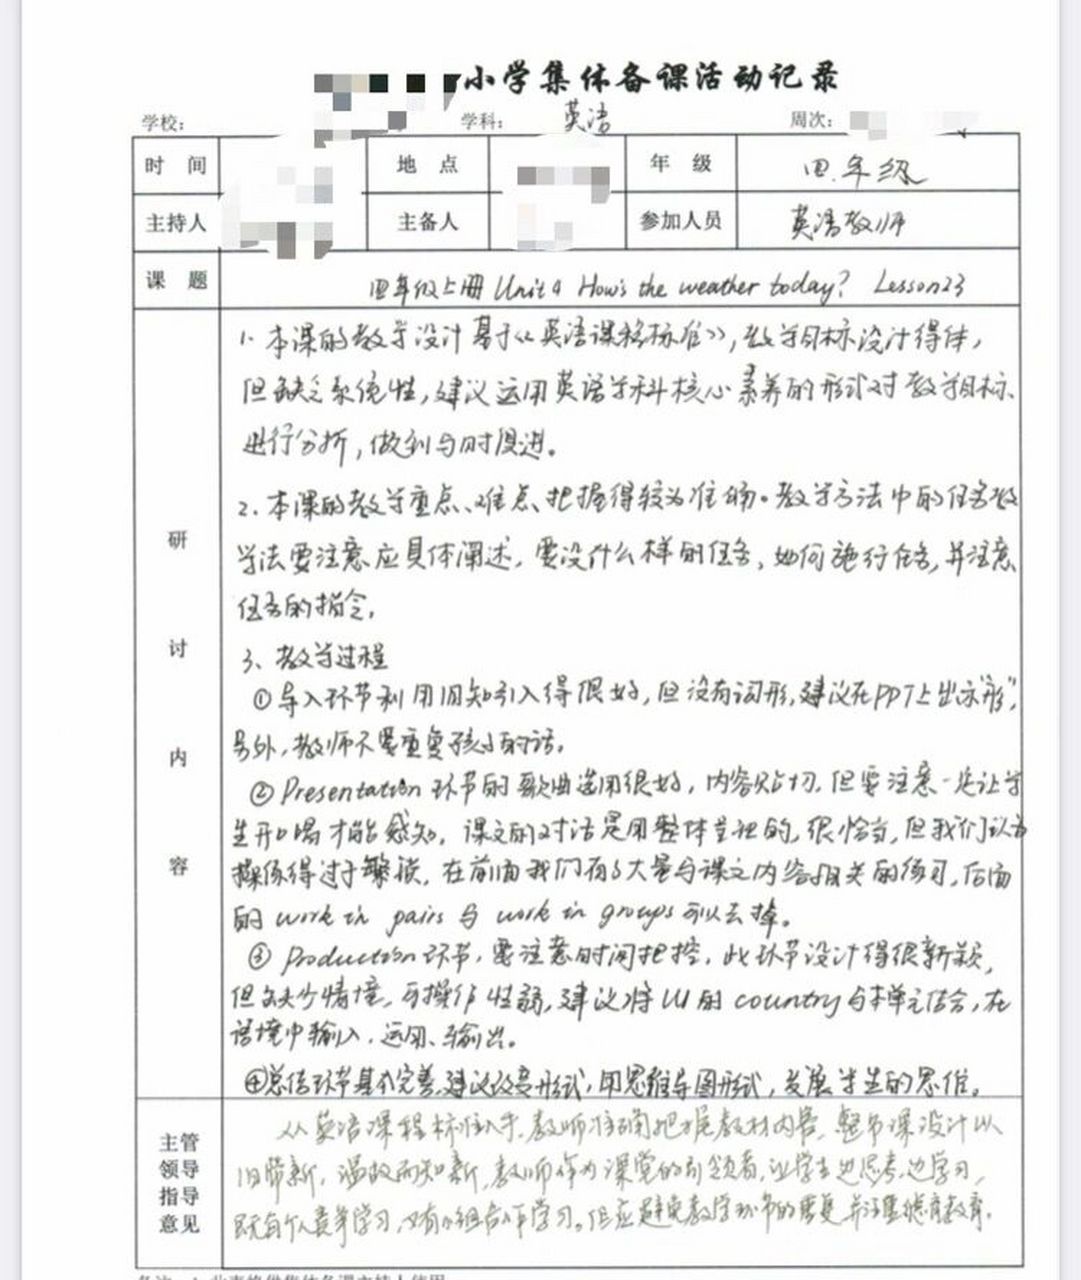 小学集体备课活动记录
学校: 学科: 英语 周次:
时 间 地 点 年 级 四年级
主持人 主备人 参加人员 英语教师
课 题 四年级上册 Unit 4 How's the weather today? Lesson23
研讨内容
1. 本课的教学设计基于《英语课程标准》,教学目标设计得体,
但缺乏系统性,建议运用英语学科核心素养的形式对教学目标
进行分析,做到与时俱进。
2. 本课的教学重点、难点、把握得较为准确。教学方法中的任务教
学法要注意应具体阐述,要设什么样的任务,如何施行任务,并注意
任务的指令。
3、教学过程
①导入环节利用旧知引入得很好,但没有词形,建议在PPT上出示“形”,
另外,教师不要重复孩子的话。
②Presentation 环节的歌曲选用很好,内容贴切,但要注意一定让学
生开口唱才能感知。课文的对话是用整体呈现的,很恰当,但我们认为
操练得过于繁琐,在前面我们有了大量与课文内容相关的练习,后面
的 work in pairs 与 work in groups 可以去掉。
③Production环节,要注意时间把控,此环节设计得很新颖,
但缺少情境,可操作性弱,建议将U1的country与本单元结合,在
语境中输入、运用、输出。
④总结环节基本完善,建议改变形式,用思维导图形式,发展学生的思维。
主管领导指导意见
从英语课程标准入手,教师准确把握教材内容,整节课设计以
旧带新,温故而知新,教师作为课堂的引领者,让学生边思考,边学习,
既有个人竞争学习,又有小组合作学习。但应避免教学环节的重复,并注重德育教育。